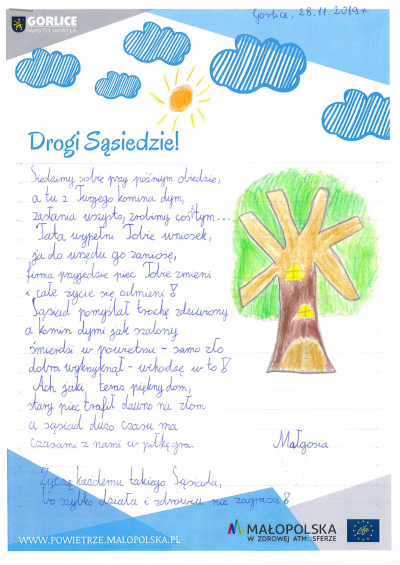 GORLICE
MIASTO ŚWIATŁA
Gorlice, 28.11.2019 r.
Drogi Sąsiedzie!
Siedzimy sobie przy późnym obiedzie,
a tu z Twojego komina dym,
zasłania wszysto, zrobimy coś z tym...
Tata wypełni Tobie wniosek,
ja do urzędu go zaniosę,
firma przyjedzie piec Tobie zmieni
i całe życie się odmieni!
Sąsiad pomyślał trochę zdziwiony
a komin dymi jak szalony
śmierdzi w powietrzu - samo zło
dobra wykrzyknął - wchodzę w to!
Ach jaki teraz piękny dom,
stary piec trafił dawno na złom
a sąsiad dużo czasu ma
czasami z nami w piłkę gra.
Małgosia
Życzę każdemu takiego Sąsiada,
bo szybko działa i zdrowiu nie zagraża!
WWW.POWIETRZE.MALOPOLSKA.PL
MAŁOPOLSKA
W ZDROWEJ ATMOSFERZE
Life